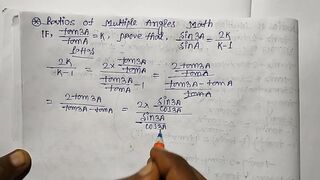 ⊛ Ratios of Multiple Angles Math
IF, tan3A/tanA = K, prove that, sin3A/sinA = 2K/K-1
2K/K-1 = 2× tan3A/tanA / tan3A/tanA - 1 = 2tan3A/tanA / tan3A-tanA/tanA
= 2tan3A/tan3A-tanA = 2× sin3A/cos3A / sin3A/cos3A